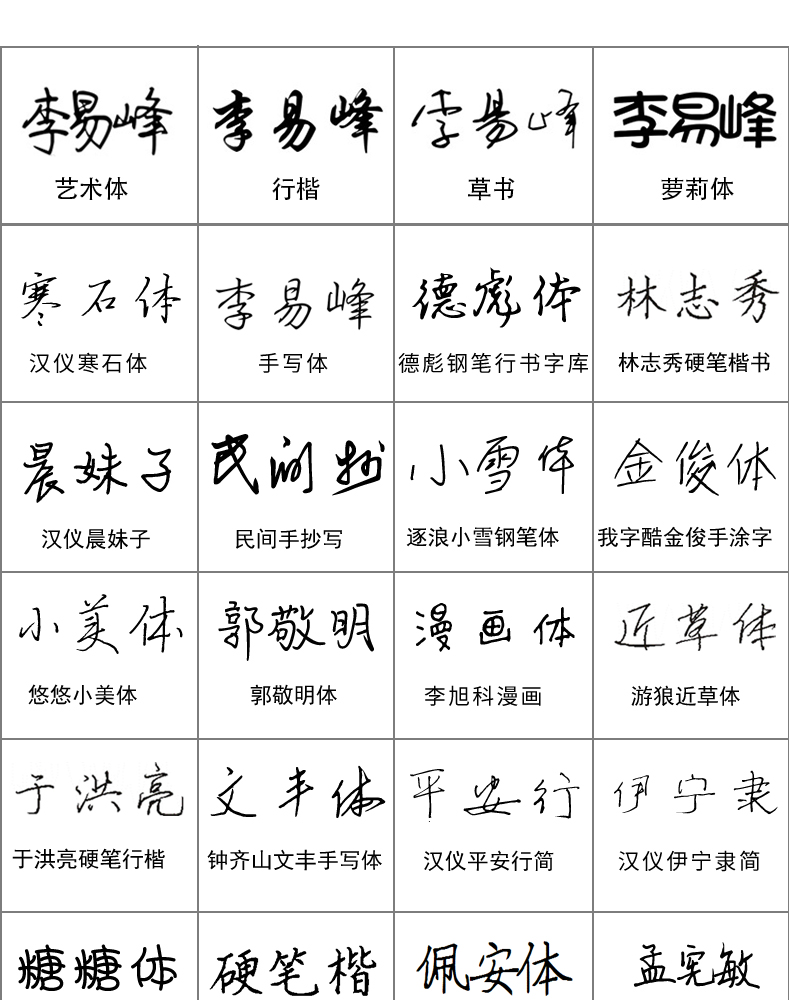 李易峰 李易峰 李易峰 李易峰
艺术体 行楷 草书 萝莉体
寒石体 李易峰 德彪体 林志秀
汉仪寒石体 手写体 德彪钢笔行书字库 林志秀硬笔楷书
晨妹子 民间抄 小雪体 金俊体
汉仪晨妹子 民间手抄写 逐浪小雪钢笔体 我字酷金俊手涂字
小美体 郭敬明 漫画体 近草体
悠悠小美体 郭敬明体 李旭科漫画 游狼近草体
于洪亮 文丰体 平安行 伊宁隶
于洪亮硬笔行楷 钟齐山文丰手写体 汉仪平安行简 汉仪伊宁隶简
糖糖体 硬笔楷 佩安体 孟宪敏